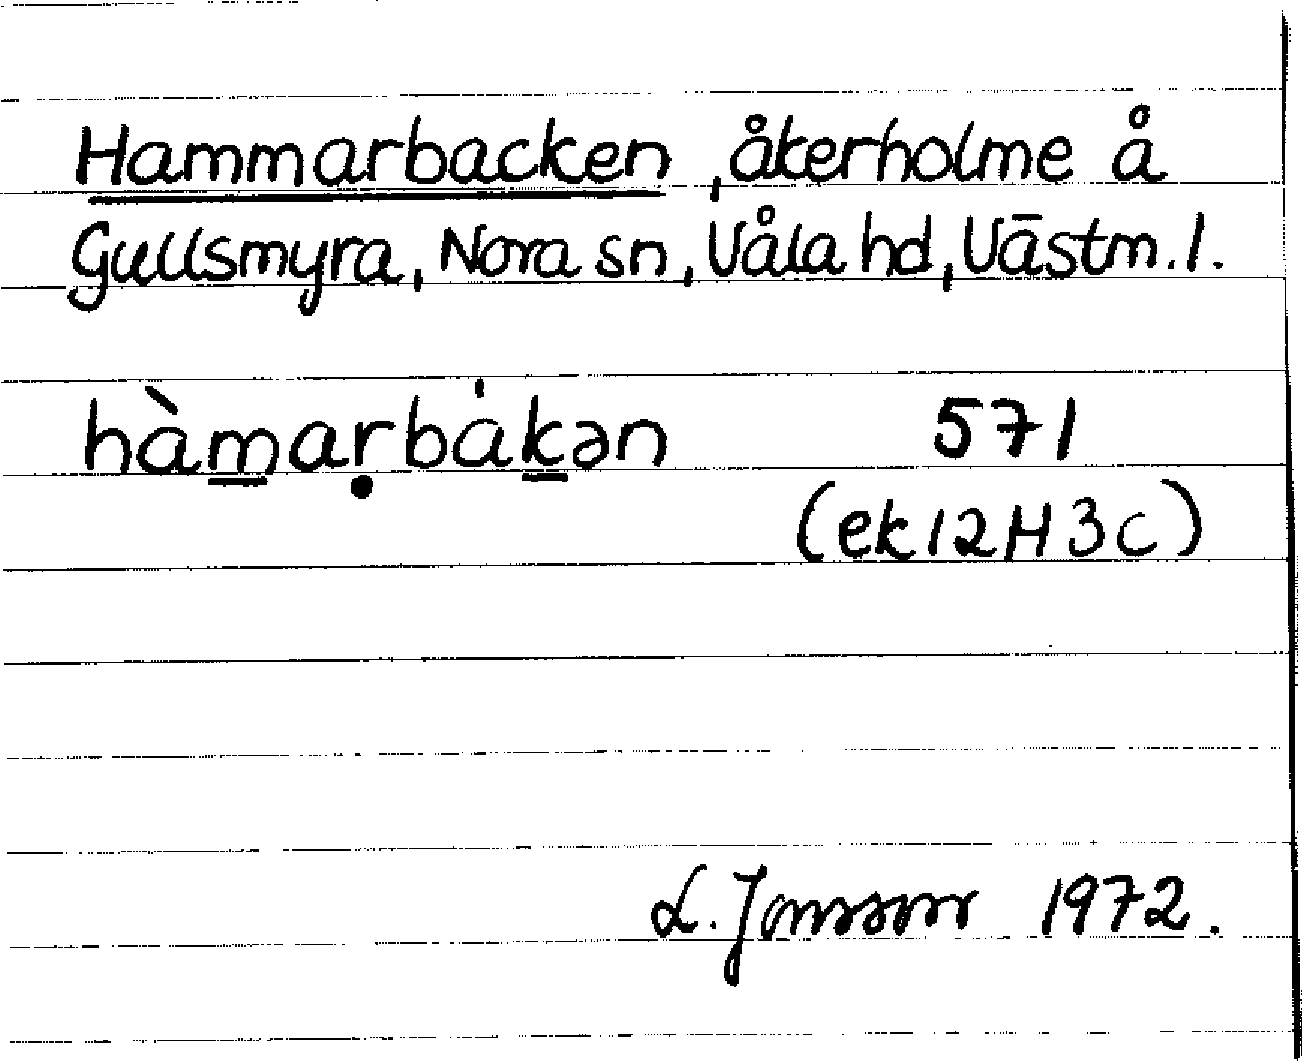 Hammarbacken, åkerholme å
Gullsmyra, Nora sn, Våla hd, Västm. l.
hàm̲arḅák̲ən 571
(ek 12H3C)
L. Jonsson 1972.